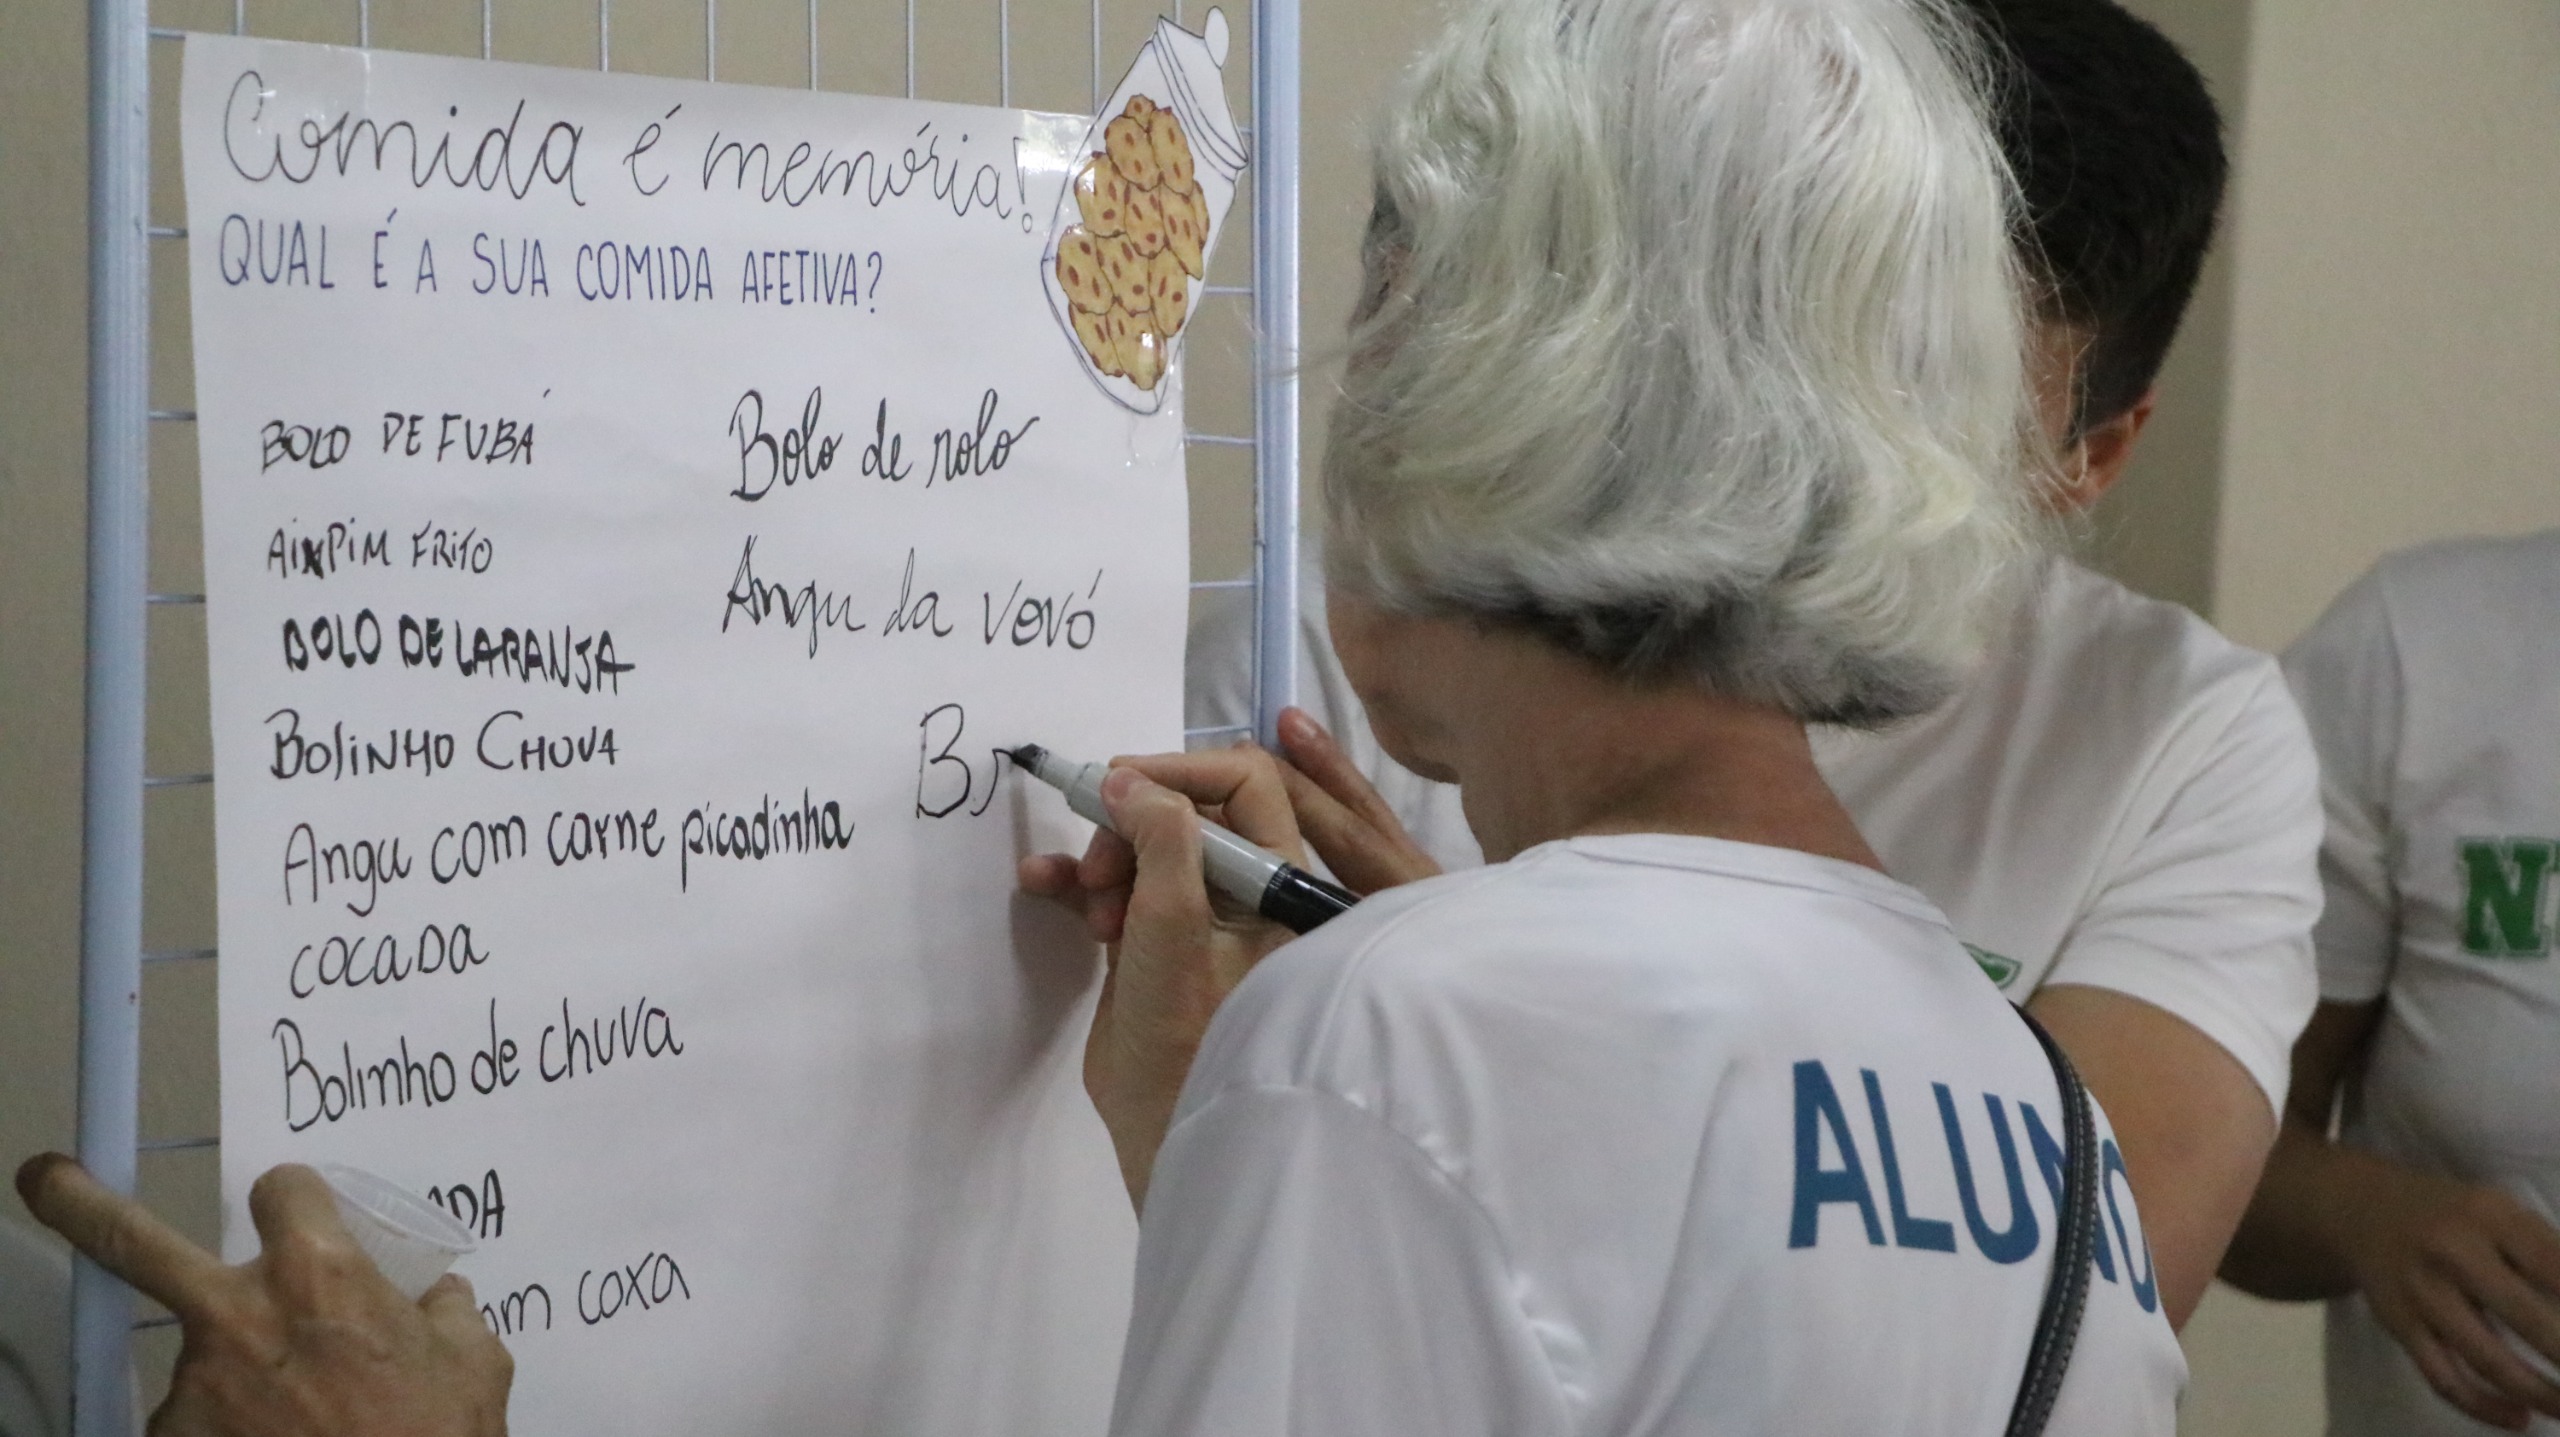 Comida é memória!
QUAL É A SUA COMIDA AFETIVA?
BOLO DE FUBÁ
AIXPIM FRITO
BOLO DE LARANJA
BOLINHO CHUVA
Angu com carne picadinha
COCADA
Bolinho de chuva
coxa
Bolo de rolo
Angu da vovó
B
ALUNO
N